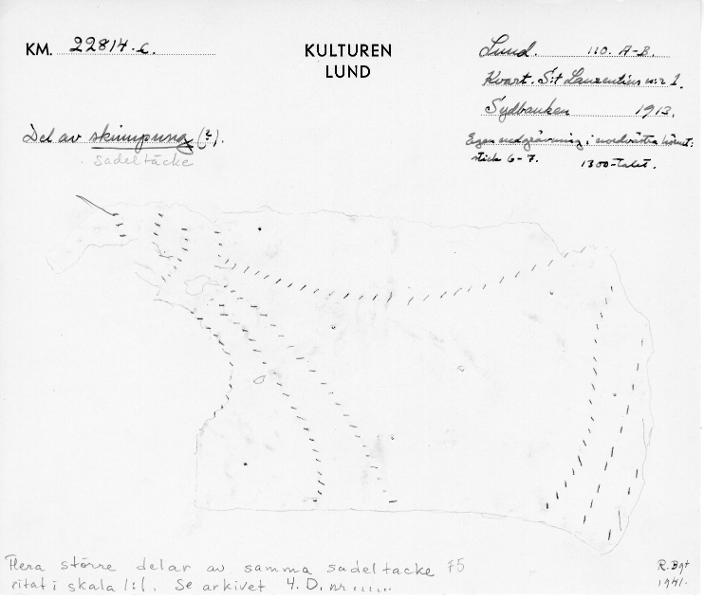 KM. 22814.c.
KULTUREN
LUND
Lund. 110. A-B.
Kvart. S:t Laurentius nr 1.
Sydbanken 1913.
Egen nedgrävning i nordvästra hörnet:
stick 6-7. 1300-talet.
Del av skinnpung (?).
Sadeltäcke
Flera större delar av samma sadeltäcke 75
ritat i skala 1:1. Se arkivet 4. D. nr......
R. Bgt
1941.